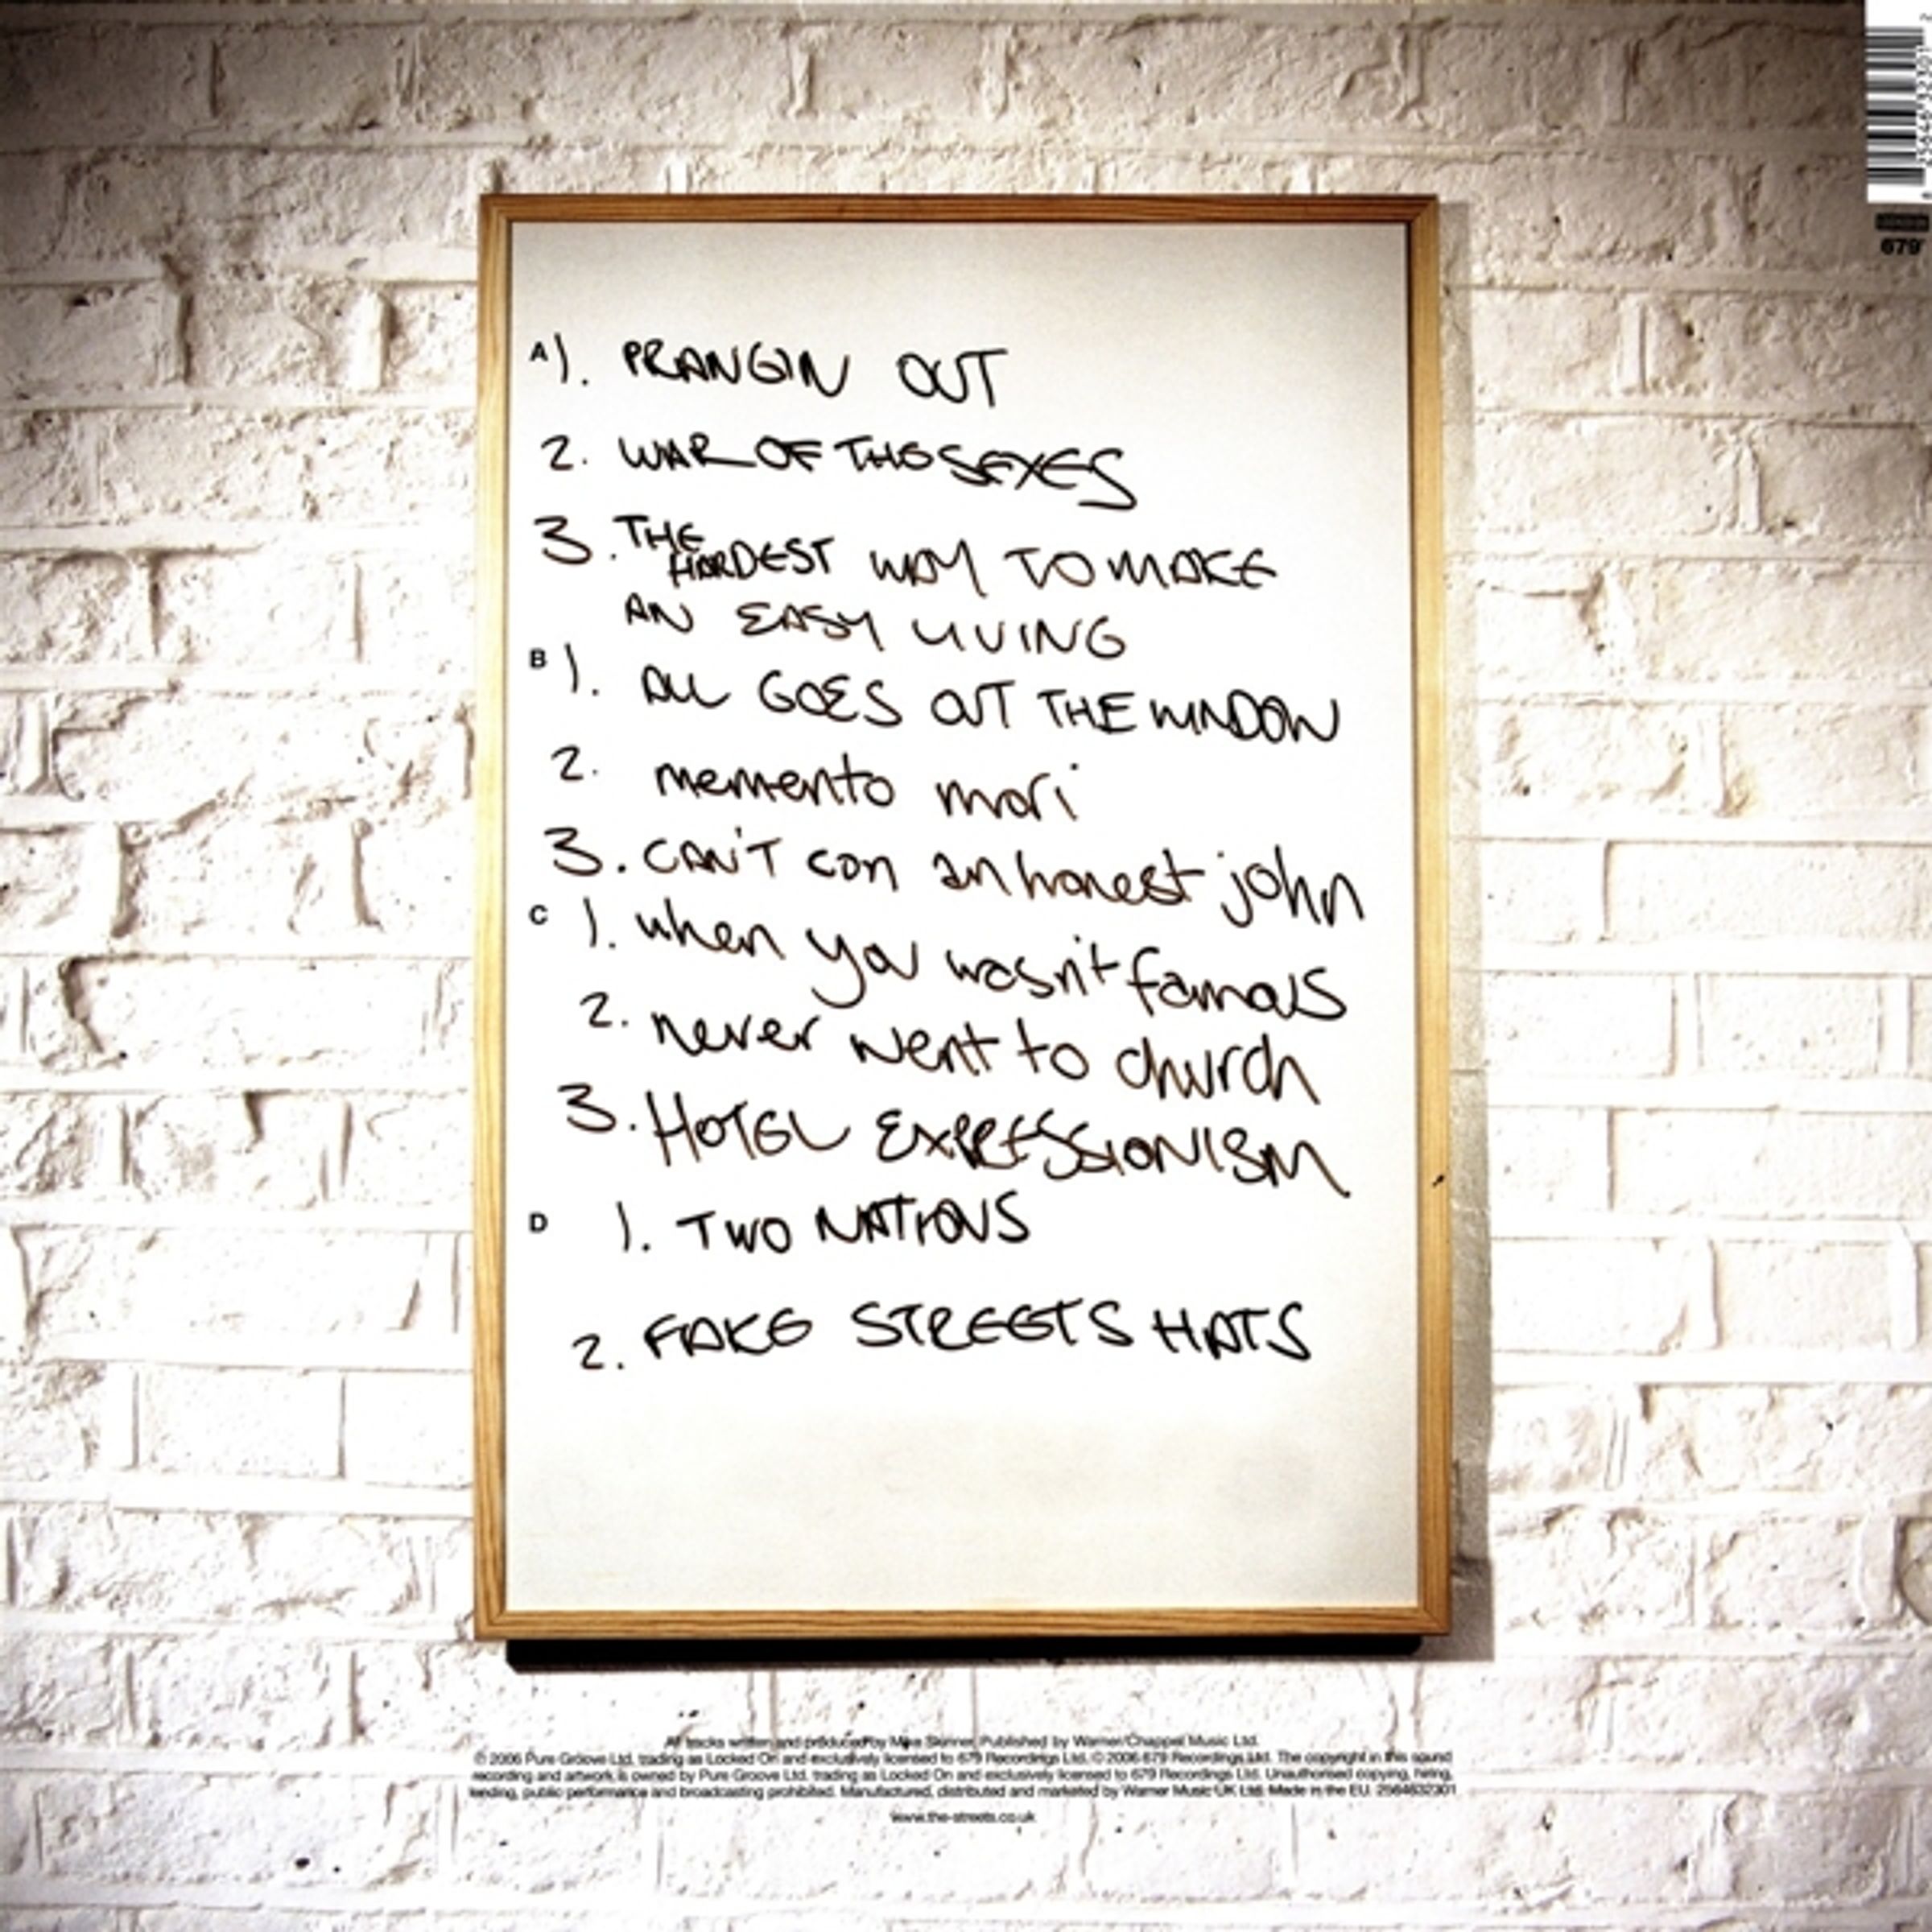 A 1. PRANGIN OUT
2. WAR OF THE SEXES
3. THE
HARDEST WAY TO MAKE
AN EASY LIVING
B 1. ALL GOES OUT THE WINDOW
2. memento mori
3. CAN'T con an honest john
C 1. when you wasn't famous
2. never went to church
3. HOTEL EXPRESSIONISM
D 1. TWO NATIONS
2. FAKE STREETS HATS
679
All tracks written and produced by Mike Skinner. Published by Warner/Chappel Music Ltd.
℗ 2006 Pure Groove Ltd. trading as Locked On and exclusively licensed to 679 Recordings Ltd. © 2006 679 Recordings Ltd. The copyright in this sound
recording and artwork is owned by Pure Groove Ltd. trading as Locked On and exclusively licensed to 679 Recordings Ltd. Unauthorised copying, hiring,
lending, public performance and broadcasting prohibited. Manufactured, distributed and marketed by Warner Music UK Ltd. Made in the EU. 2564632301
www.the-streets.co.uk